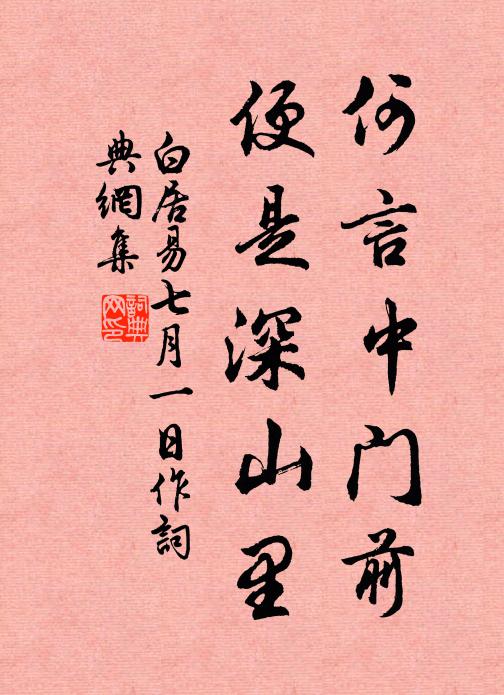 何言中门前
便是深山里
白居易七月一日作詞
典網集
詞典网印